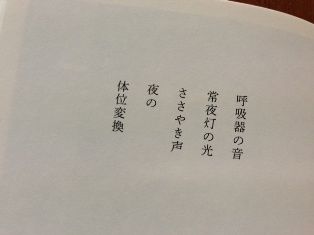 呼吸器の音
常夜灯の光
ささやき声
夜の
体位変換